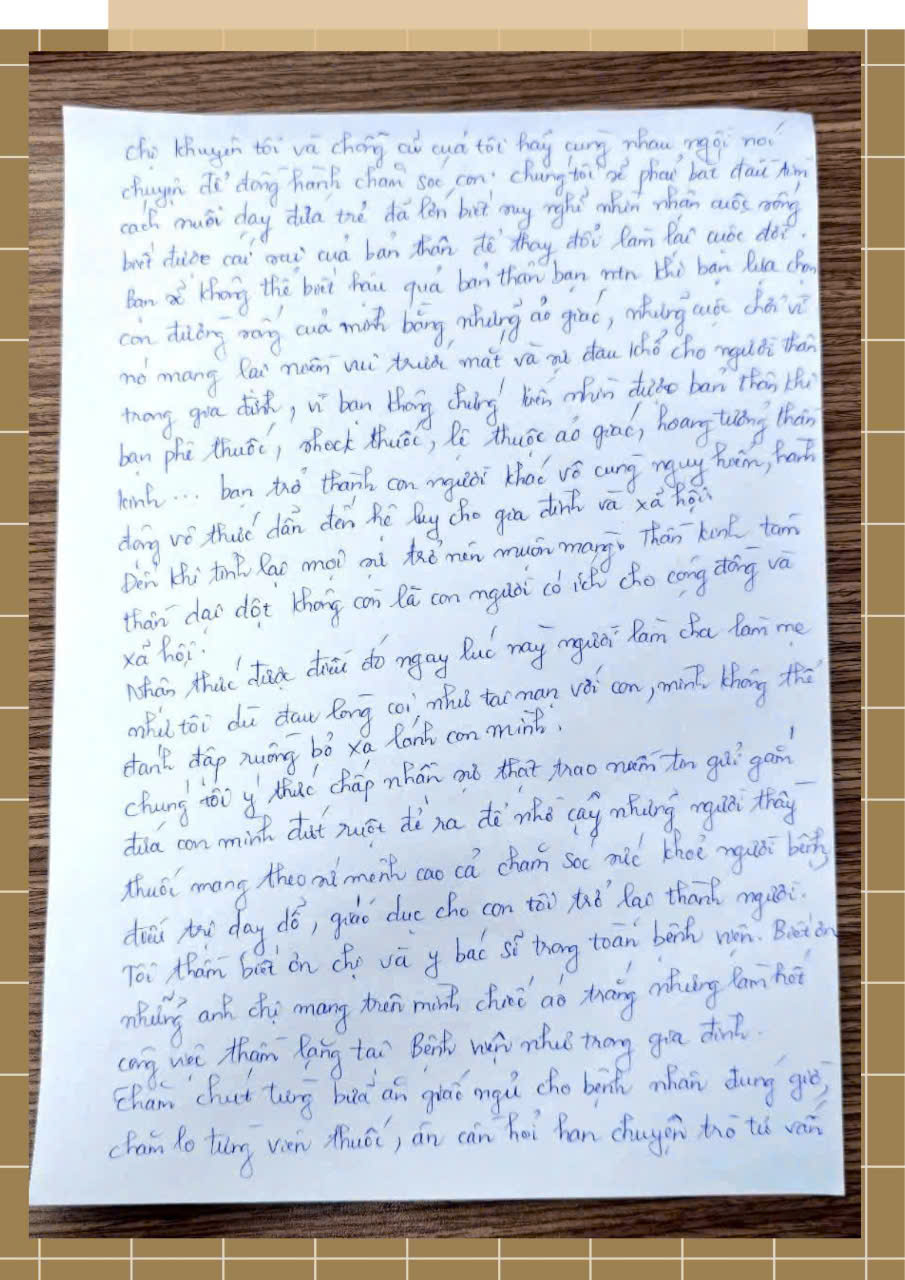 chị khuyên tôi và chồng cũ của tôi hãy cùng nhau ngồi nói
chuyện để đồng hành chăm sóc con. chúng tôi sẽ phải bắt đầu tìm
cách nuôi dạy đứa trẻ đã lớn biết suy nghĩ nhìn nhận cuộc sống
biết được cái sai của bản thân để thay đổi làm lại cuộc đời.
Bạn sẽ không thể biết hậu quả bản thân bạn khi bạn lựa chọn
con đường sống của mình bằng những ảo giác, những cuộc chơi vì
nó mang lại niềm vui trước mắt và sự đau khổ cho người thân
trong gia đình, vì bạn không chứng kiến nhìn được bản thân khi
bạn phê thuốc, shock thuốc, lệ thuộc ảo giác, hoang tưởng thần
kinh... bạn trở thành con người khác vô cùng nguy hiểm, hành
động vô thức dẫn đến hệ lụy cho gia đình và xả hội.
Đến khi tỉnh lại mọi sự trở nên muộn màng. Thần kinh tâm
thần dại dột không còn là con người có ích cho cộng đồng và
xả hội.
Nhận thức được điều đó ngay lúc này người làm cha làm mẹ
như tôi dù đau lòng coi như tai nạn với con, mình không thể
đánh đập ruồng bỏ xa lánh con mình.
chúng tôi ý thức chấp nhận sự thật trao niềm tin gửi gắm
đứa con mình đứt ruột đẻ ra để nhờ cậy những người thầy
thuốc mang theo sứ mệnh cao cả chăm sóc sức khoẻ người bệnh,
điều trị dạy dổ, giáo dục cho con tôi trở lại thành người.
Tôi thầm biết ơn chị và y bác sĩ trong toàn bệnh viện. Biết ơn
những anh chị mang trên mình chiếc áo trắng nhưng làm hết
công việc thầm lặng tại Bệnh viện như trong gia đình.
Chăm chút từng bửa ăn giấc ngủ cho bệnh nhân đúng giờ,
chăm lo từng viên thuốc, ân cần hỏi han chuyện trò tư vấn